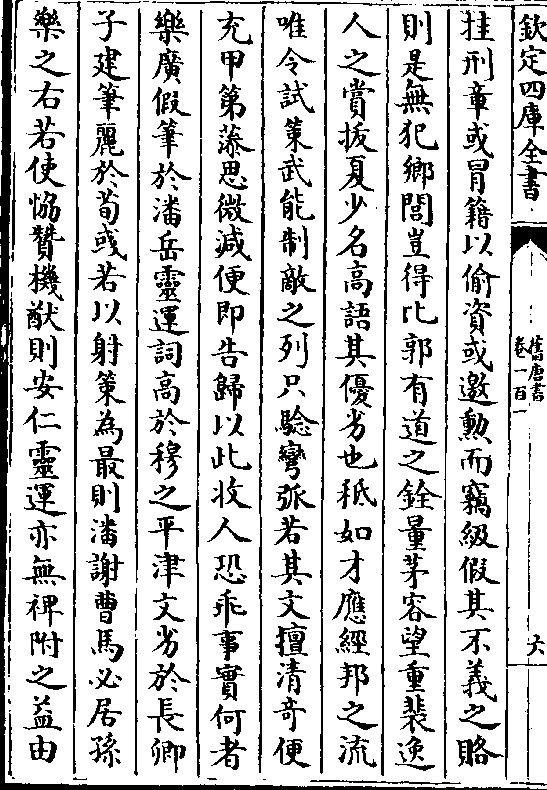 欽定四庫全書
舊唐書
卷一百一
六
挂刑章或冒籍以偷資或邀勲而竊級假其不義之賂
則是無犯鄉閭豈得比郭有道之銓量茅容望重裴逸
人之賞拔夏少名高語其優劣也秪如才應經邦之流
唯令試策武能制敵之列只驗彎弧若其文擅清奇便
充甲第藻思微減便即告歸以此收人恐乖事實何者
樂廣假筆於潘岳靈運詞高於穆之平津文劣於長卿
子建筆麗於荀彧若以射策為最則潘謝曹馬必居孫
樂之右若使恊贊機猷則安仁靈運亦無裨附之益由